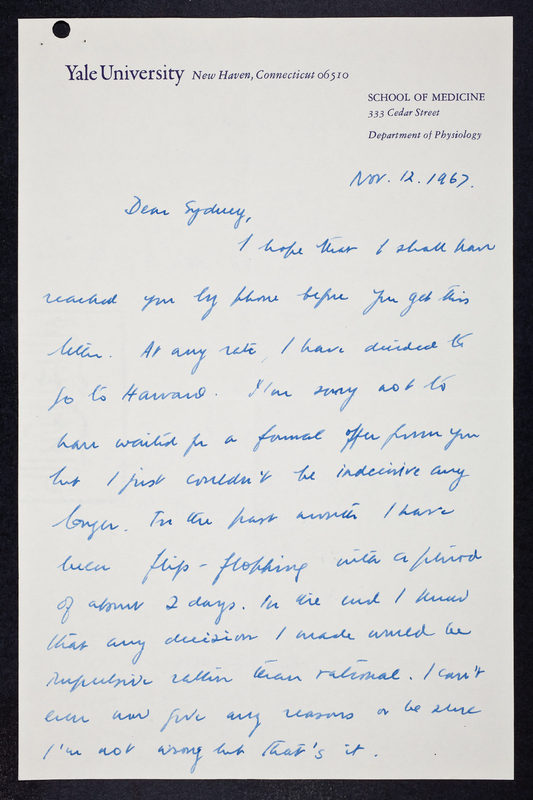 Yale University New Haven, Connecticut 06510
SCHOOL OF MEDICINE
333 Cedar Street
Department of Physiology
Nov. 12. 1967.
Dear Sydney,
I hope that I shall have
reached you by phone before you get this
letter. At any rate, I have decided to
go to Harvard. I'm sorry not to
have waited for a formal offer from you
but I just couldn't be indecisive any
longer. In the past month I have
been flip-flopping with a period
of about 2 days. In the end I knew
that any decision I made would be
impulsive rather than rational. I can't
even now give any reasons or be sure
I'm not wrong but that's it.